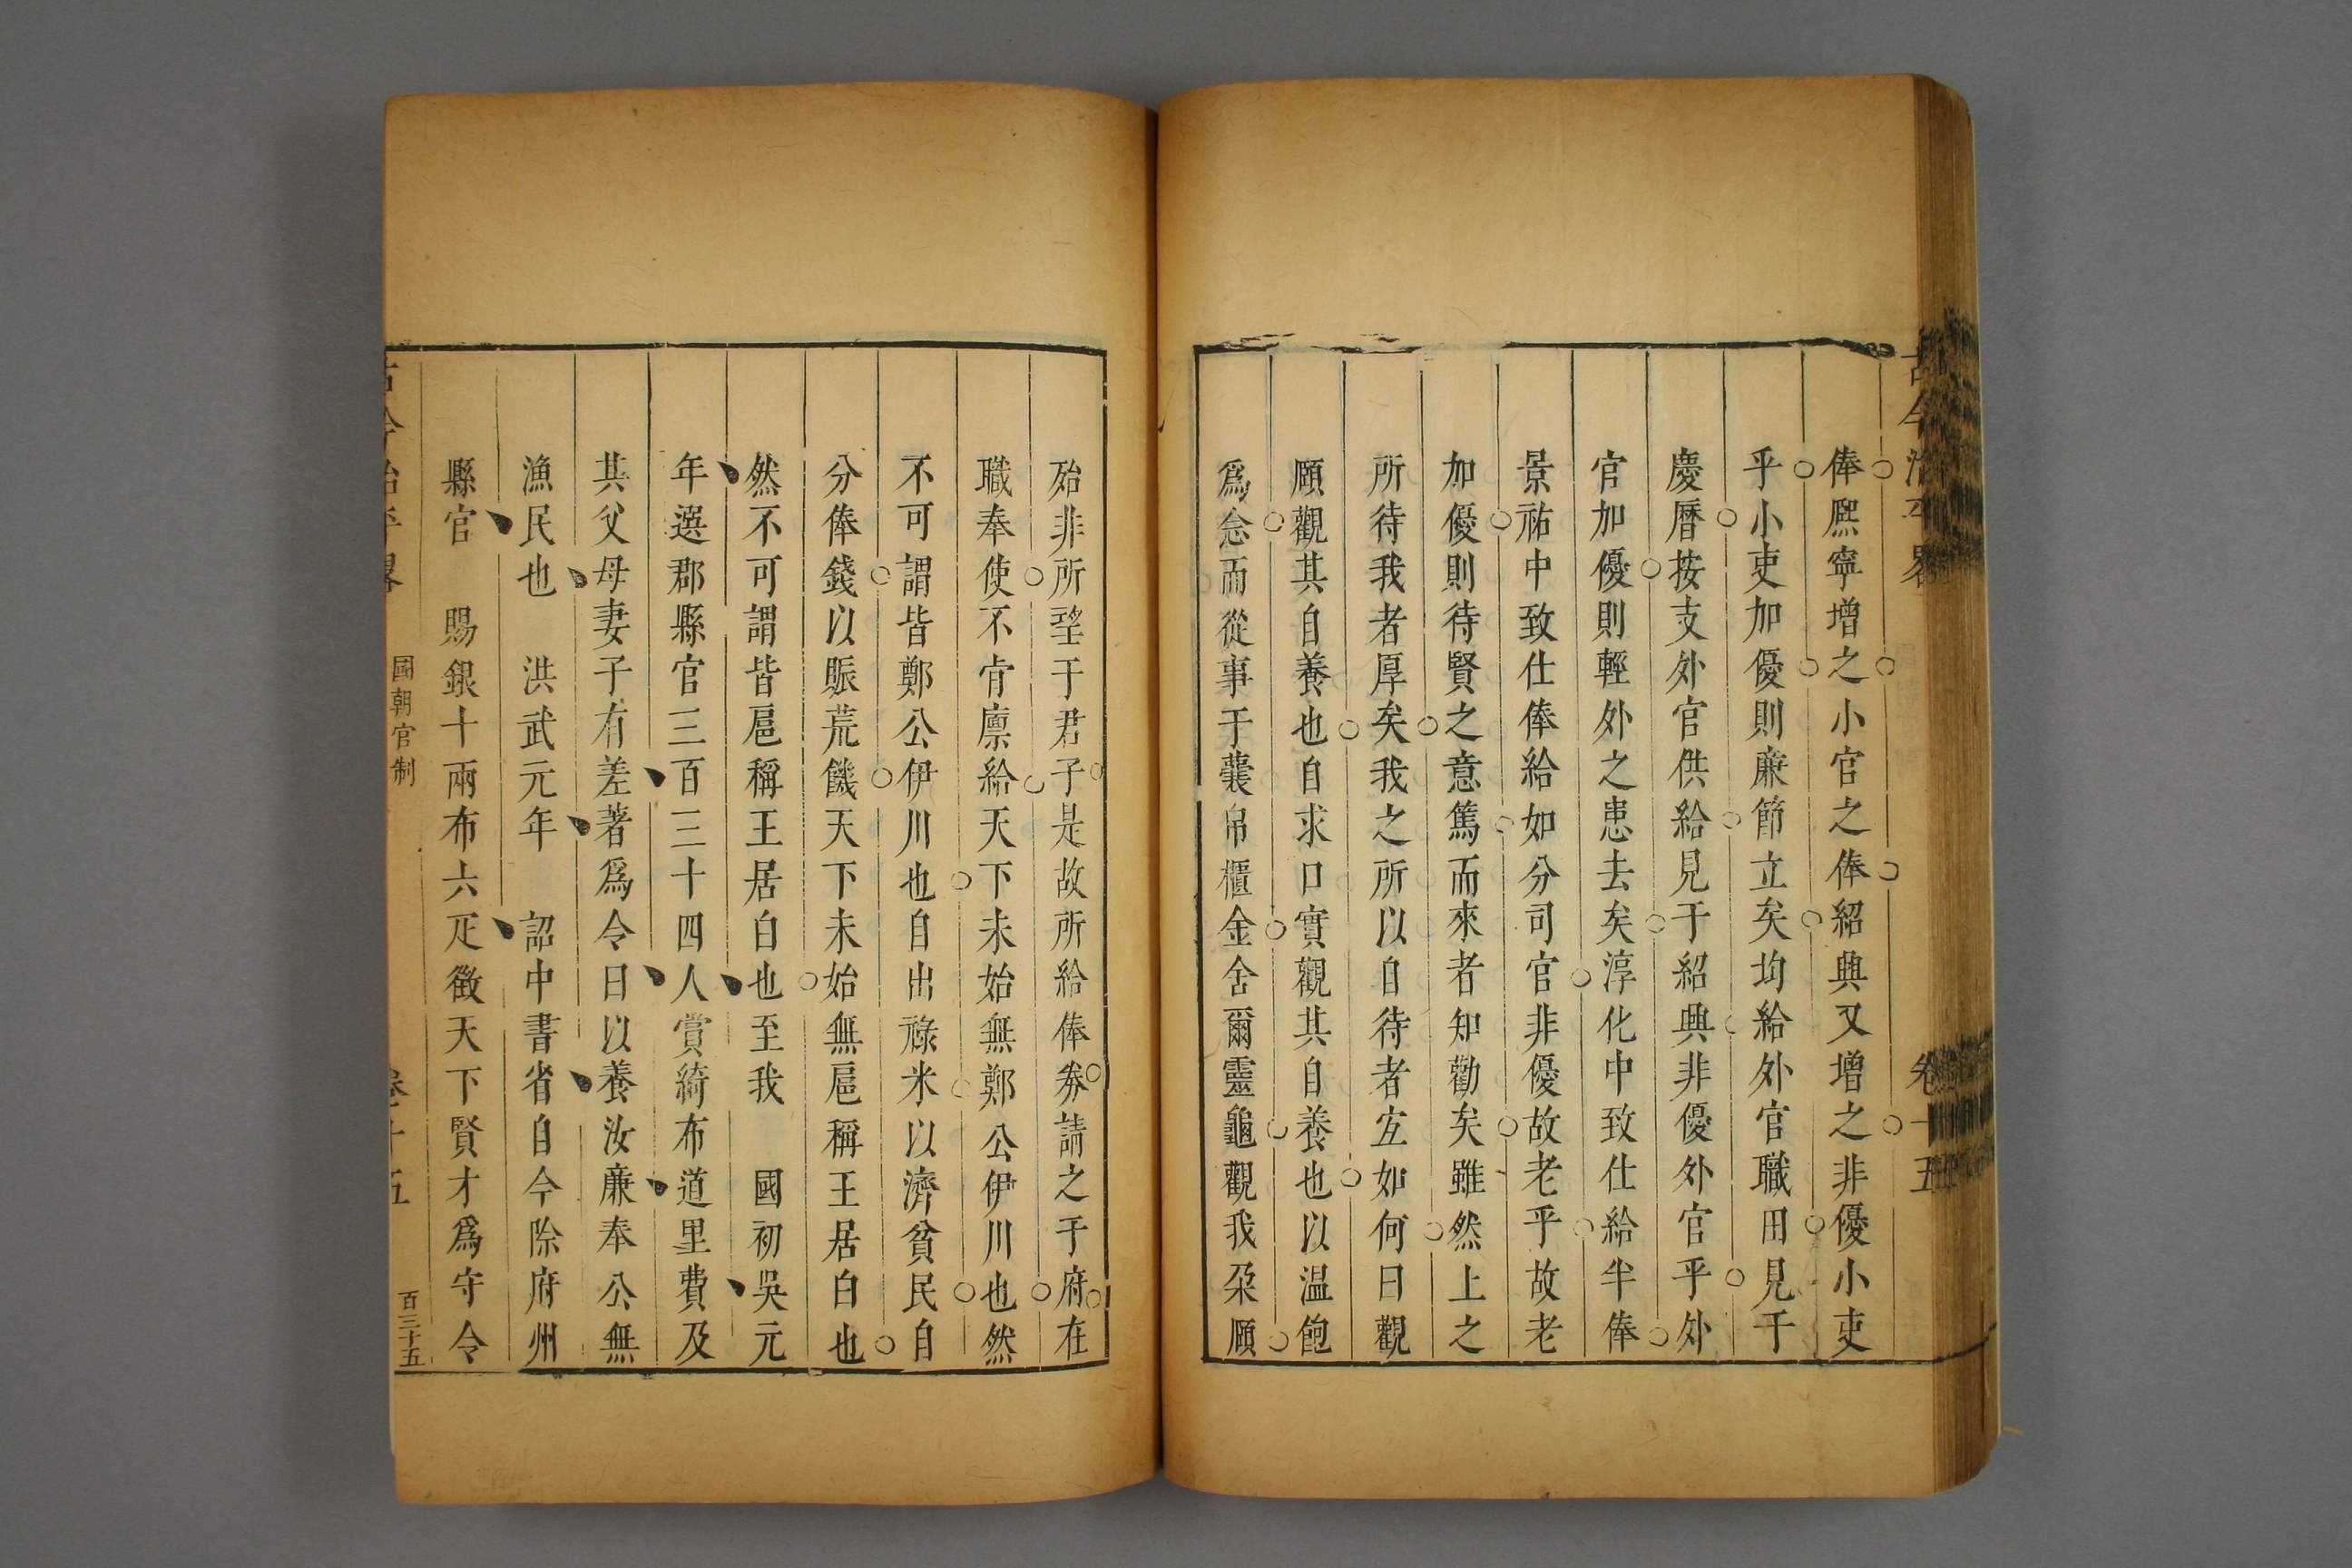 古今治平畧
卷十五
俸熈寧增之小官之俸紹興又增之非優小吏
乎小吏加優則廉節立矣均給外官職田見于
慶曆按支外官供給見于紹興非優外官乎外
官加優則輕外之患去矣淳化中致仕給半俸
景祐中致仕俸給如分司官非優故老乎故老
加優則待賢之意篤而來者知勸矣雖然上之
所待我者厚矣我之所以自待者宐如何曰觀
頤觀其自養也自求口實觀其自養也以温飽
爲念而從事于囊帛櫃金舍爾靈龜觀我朶頤
殆非所望于君子是故所給俸券請之于府在
職奉使不肯廪給天下未始無鄭公伊川也然
不可謂皆鄭公伊川也自出祿米以濟貧民自
分俸錢以賑荒饑天下未始無扈稱王居白也
然不可謂皆扈稱王居白也至我 國初吳元
年選郡縣官三百三十四人賞綺布道里費及
其父母妻子有差著爲令曰以養汝廉奉公無
漁民也 洪武元年 詔中書省自今除府州
縣官 賜銀十兩布六疋徵天下賢才爲守令
古今治平畧
國朝官制
卷十五
百三十五